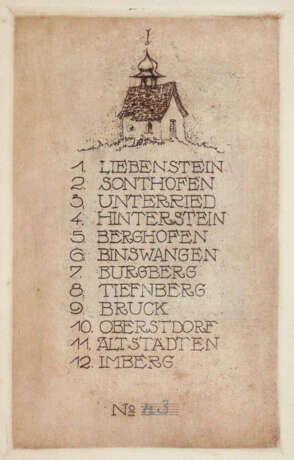 I
1. LIEBENSTEIN
2. SONTHOFEN
3. UNTERRIED
4. HINTERSTEIN
5. BERGHOFEN
6. BINSWANGEN
7. BURGBERG
8. TIEFNBERG
9. BRUCK
10. OBERSTDORF
11. ALTSTÄDTEN
12. IMBERG
No 43